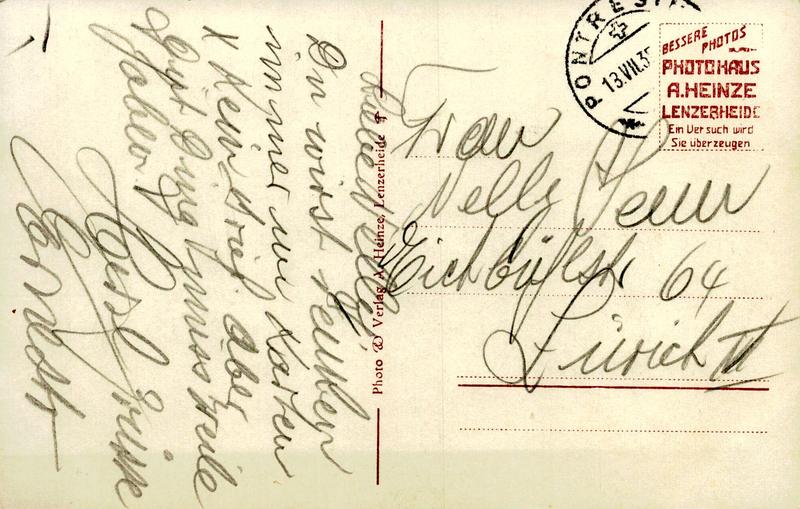 PONTRESINA
13.VII.35
BESSERE
PHOTOS
PHOTOHAUS
A.HEINZE
LENZERHEIDE
Ein Versuch wird
Sie überzeugen
Photo & Verlag A. Heinze, Lenzerheide
Liebe Nelly,
Du wirst denken
immer nur Karten
& kein Brief aber
gut Ding muss Weile
haben
Herzl Grüsse
Frau
Nelly
Eichbühlstr 64
Zürich